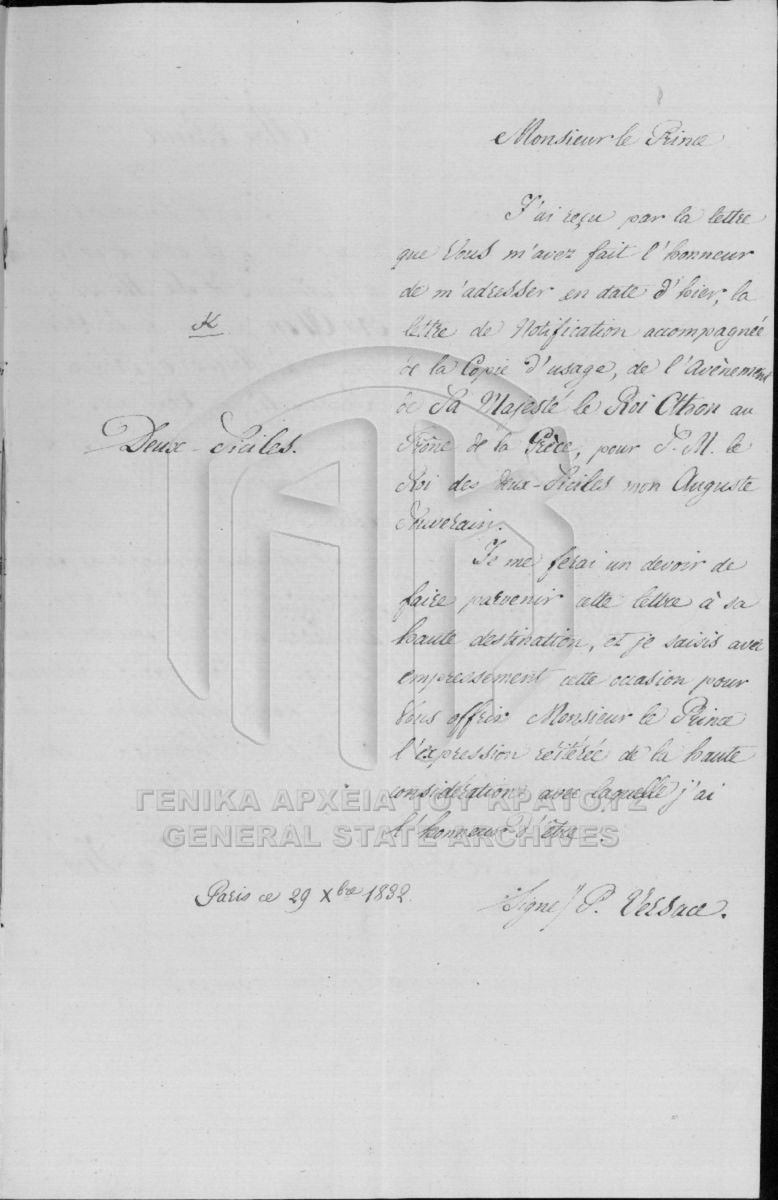 Monsieur le Prince
J'ai reçu par la lettre
que Vous m'avez fait l'honneur
de m'adresser en date d'hier, la
lettre de Notification accompagnée
de la Copie d'usage, de l'Avènement
de Sa Majesté le Roi Othon au
Trône de la Grèce, pour S. M. le
Roi des deux-Siciles mon Auguste
Souverain.
Je me ferai un devoir de
faire parvenir cette lettre à sa
haute destination, et je saisis avec
empressement cette occasion pour
Vous offrir Monsieur le Prince
l'expression réitérée de la haute
considération avec laquelle j'ai
l'honneur d'être.
Paris ce 29 Xbre 1832.
Signé/ P. Versace.
K
Deux-Siciles.
ΓΕΝΙΚΑ ΑΡΧΕΙΑ ΤΟΥ ΚΡΑΤΟΥΣ
GENERAL STATE ARCHIVES